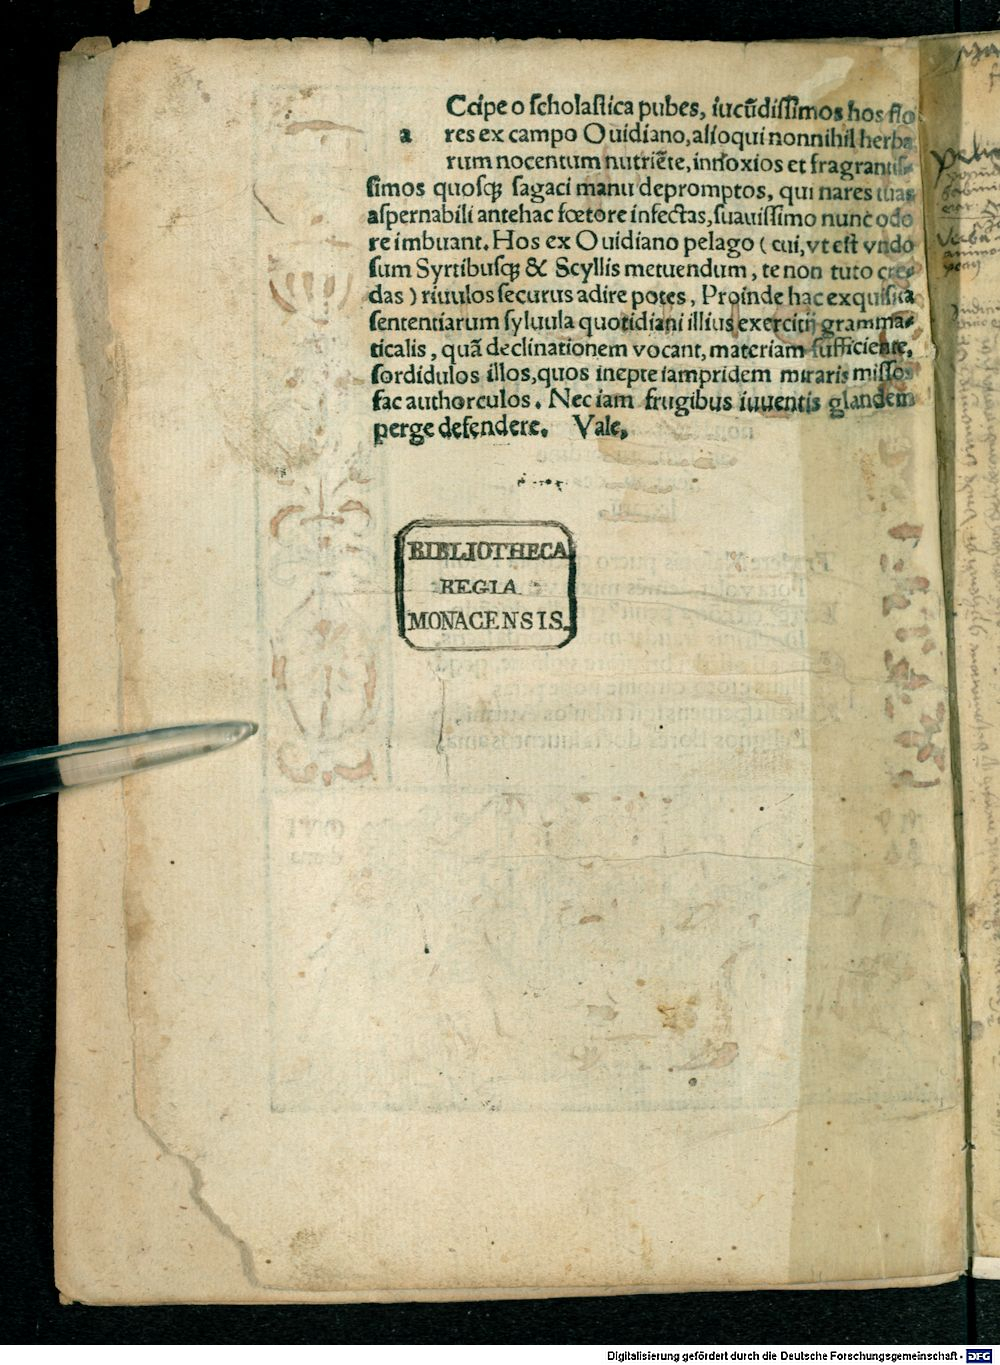 Ccipe o scholastica pubes, iucũdissimos hos flo
a res ex campo Ouidiano, alioqui nonnihil herba
rum nocentum nutriẽte, innoxios et fragrantis-
simos quosqȝ sagaci manu depromptos, qui nares tuas
aspernabili antehac fœtore infectas, suauissimo nunc odo
re imbuant. Hos ex Ouidiano pelago (cui, vt est vndo
sum Syrtibusqȝ & Scyllis metuendum, te non tuto cre-
das) riuulos securus adire potes, Proinde hac exquisita
sententiarum syluula quotidiani illius exercitij gramma-
ticalis, quã declinationem vocant, materiam sufficiente,
sordidulos illos, quos inepte iampridem miraris missos
fac authorculos. Nec iam frugibus iuuentis glandem
perge defendere. Vale,
BIBLIOTHECA
REGIA
MONACENSIS.
Digitalisierung gefördert durch die Deutsche Forschungsgemeinschaft - DFG